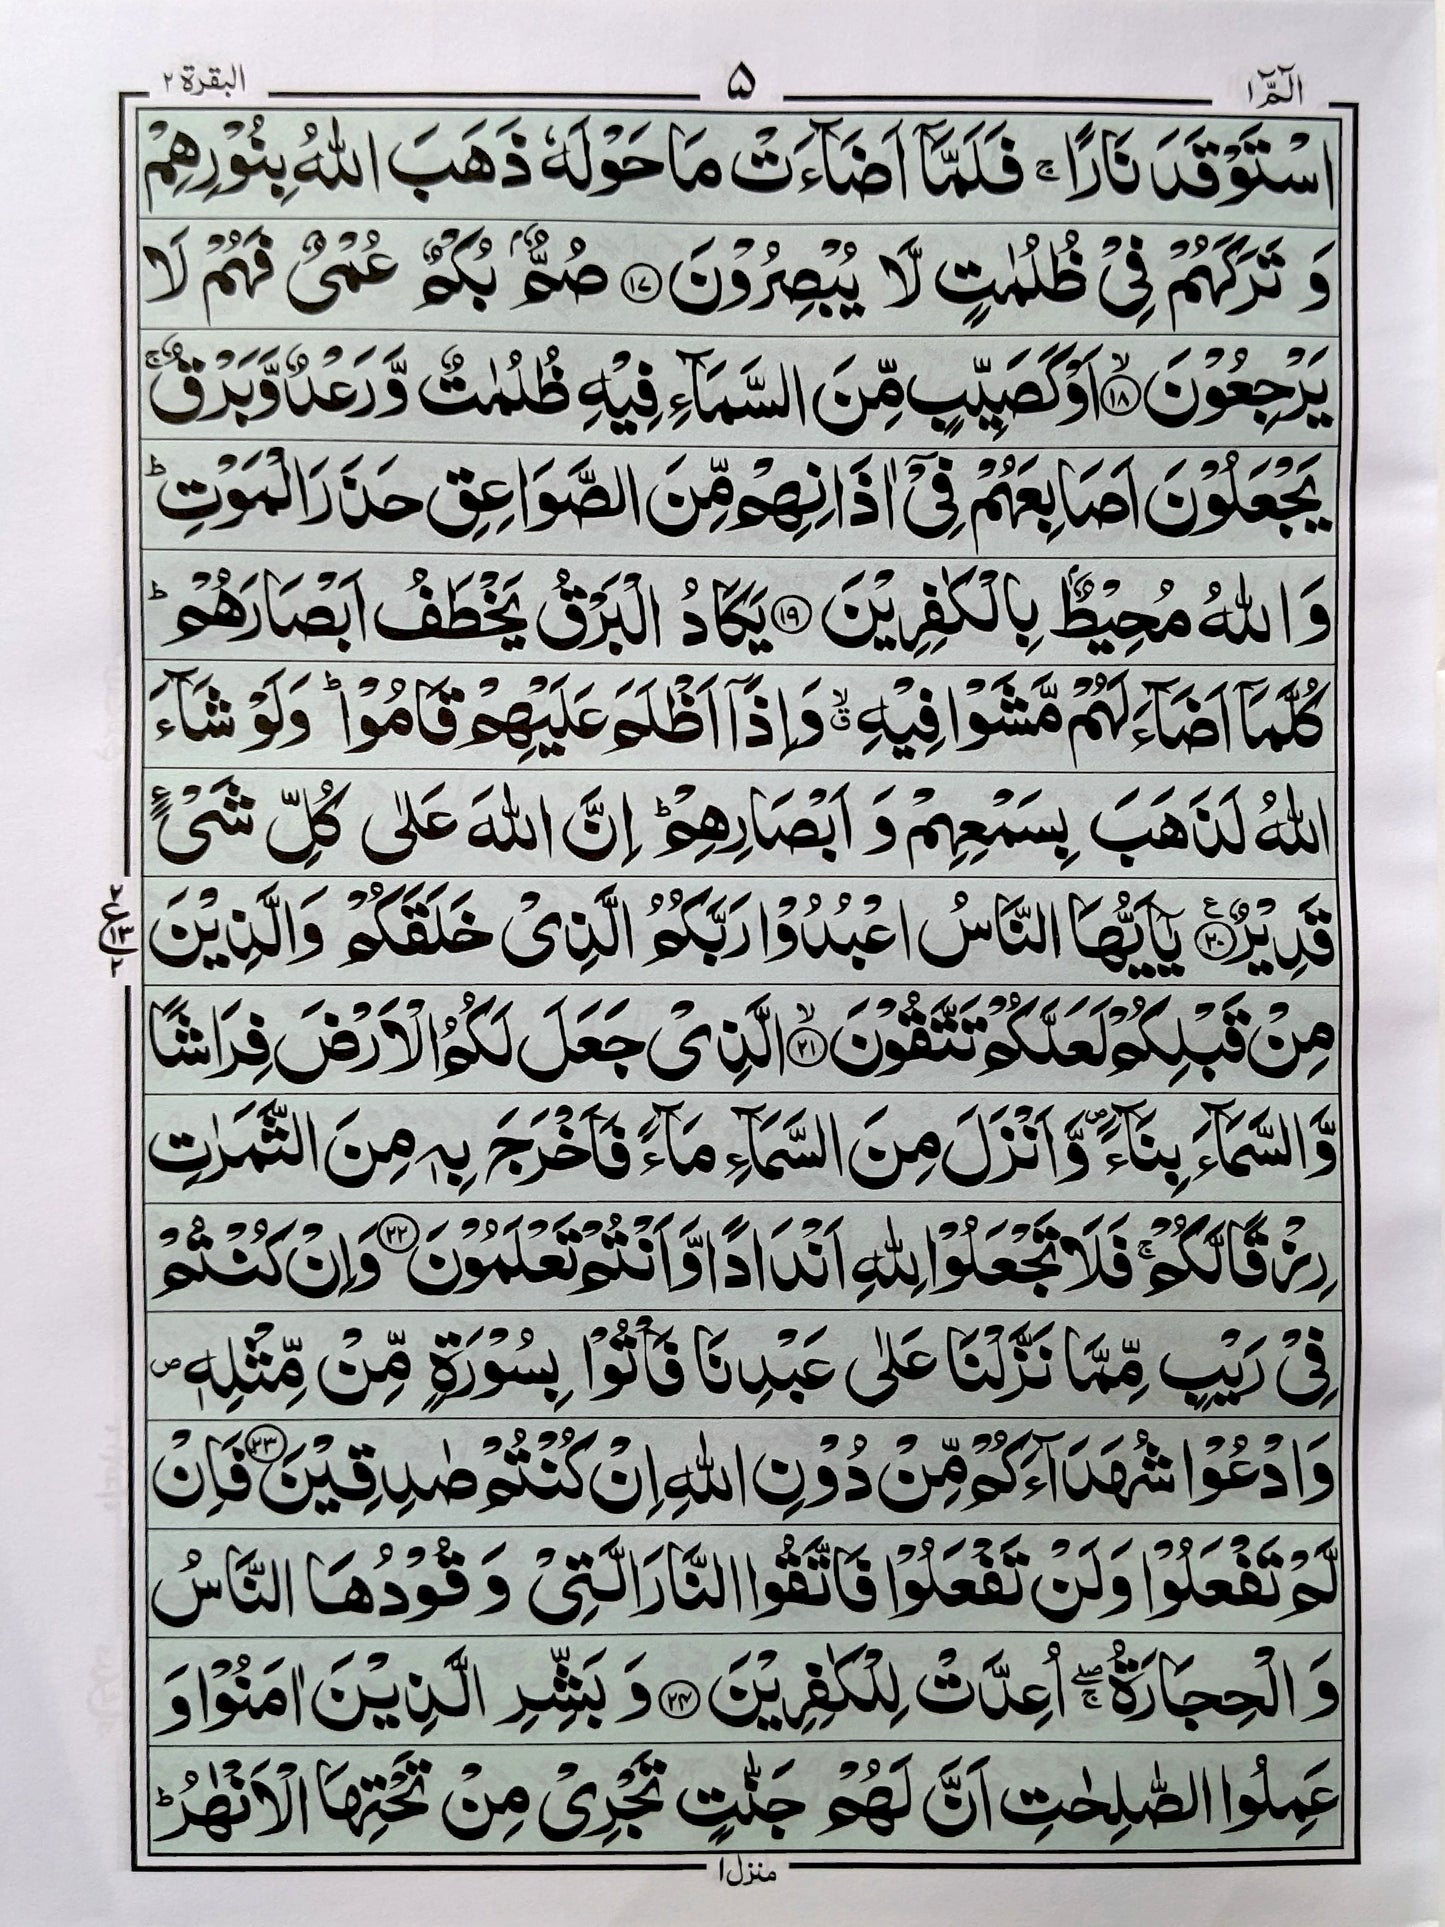 الٓمّٓ ١
۵
البقرة ٢
اسْتَوْقَدَ نَارًا ۚ فَلَمَّآ اَضَآءَتْ مَا حَوْلَهٗ ذَهَبَ اللّٰهُ بِنُوْرِهِمْ
وَ تَرَكَهُمْ فِیْ ظُلُمٰتٍ لَّا یُبْصِرُوْنَ ﴿۱۷﴾ صُمٌّۢ بُكْمٌ عُمْیٌ فَهُمْ لَا
یَرْجِعُوْنَ ﴿ۙ۱۸﴾ اَوْ كَصَیِّبٍ مِّنَ السَّمَآءِ فِیْهِ ظُلُمٰتٌ وَّ رَعْدٌ وَّ بَرْقٌ ۚ
یَجْعَلُوْنَ اَصَابِعَهُمْ فِیْۤ اٰذَانِهِمْ مِّنَ الصَّوَاعِقِ حَذَرَ الْمَوْتِ ؕ
وَ اللّٰهُ مُحِیْطٌۢ بِالْكٰفِرِیْنَ ﴿۱۹﴾ یَكَادُ الْبَرْقُ یَخْطَفُ اَبْصَارَهُمْ ؕ
كُلَّمَاۤ اَضَآءَ لَهُمْ مَّشَوْا فِیْهِ ۙۗ وَ اِذَاۤ اَظْلَمَ عَلَیْهِمْ قَامُوْا ؕ وَلَوْ شَآءَ
اللّٰهُ لَذَهَبَ بِسَمْعِهِمْ وَ اَبْصَارِهِمْ ؕ اِنَّ اللّٰهَ عَلٰی كُلِّ شَیْءٍ
قَدِیْرٌ ﴿۲۰﴾ ع یٰۤاَیُّهَا النَّاسُ اعْبُدُوْا رَبَّكُمُ الَّذِیْ خَلَقَكُمْ وَالَّذِیْنَ
٢
ع
١٣
٢
مِنْ قَبْلِكُمْ لَعَلَّكُمْ تَتَّقُوْنَ ﴿ۙ۲۱﴾ الَّذِیْ جَعَلَ لَكُمُ الْاَرْضَ فِرَاشًا
وَّ السَّمَآءَ بِنَآءً ۪ وَّ اَنْزَلَ مِنَ السَّمَآءِ مَآءً فَاَخْرَجَ بِهٖ مِنَ الثَّمَرٰتِ
رِزْقًا لَّكُمْ ۚ فَلَا تَجْعَلُوْا لِلّٰهِ اَنْدَادًا وَّ اَنْتُمْ تَعْلَمُوْنَ ﴿۲۲﴾ وَ اِنْ كُنْتُمْ
فِیْ رَیْبٍ مِّمَّا نَزَّلْنَا عَلٰی عَبْدِنَا فَاْتُوْا بِسُوْرَةٍ مِّنْ مِّثْلِهٖ ۪
وَ ادْعُوْا شُهَدَآءَكُمْ مِّنْ دُوْنِ اللّٰهِ اِنْ كُنْتُمْ صٰدِقِیْنَ ﴿۲۳﴾ فَاِنْ
لَّمْ تَفْعَلُوْا وَ لَنْ تَفْعَلُوْا فَاتَّقُوا النَّارَ الَّتِیْ وَ قُوْدُهَا النَّاسُ
وَ الْحِجَارَةُ ۖۚ اُعِدَّتْ لِلْكٰفِرِیْنَ ﴿۲۴﴾ وَ بَشِّرِ الَّذِیْنَ اٰمَنُوْا وَ
عَمِلُوا الصّٰلِحٰتِ اَنَّ لَهُمْ جَنّٰتٍ تَجْرِیْ مِنْ تَحْتِهَا الْاَنْهٰرُ ؕ
منزل ١